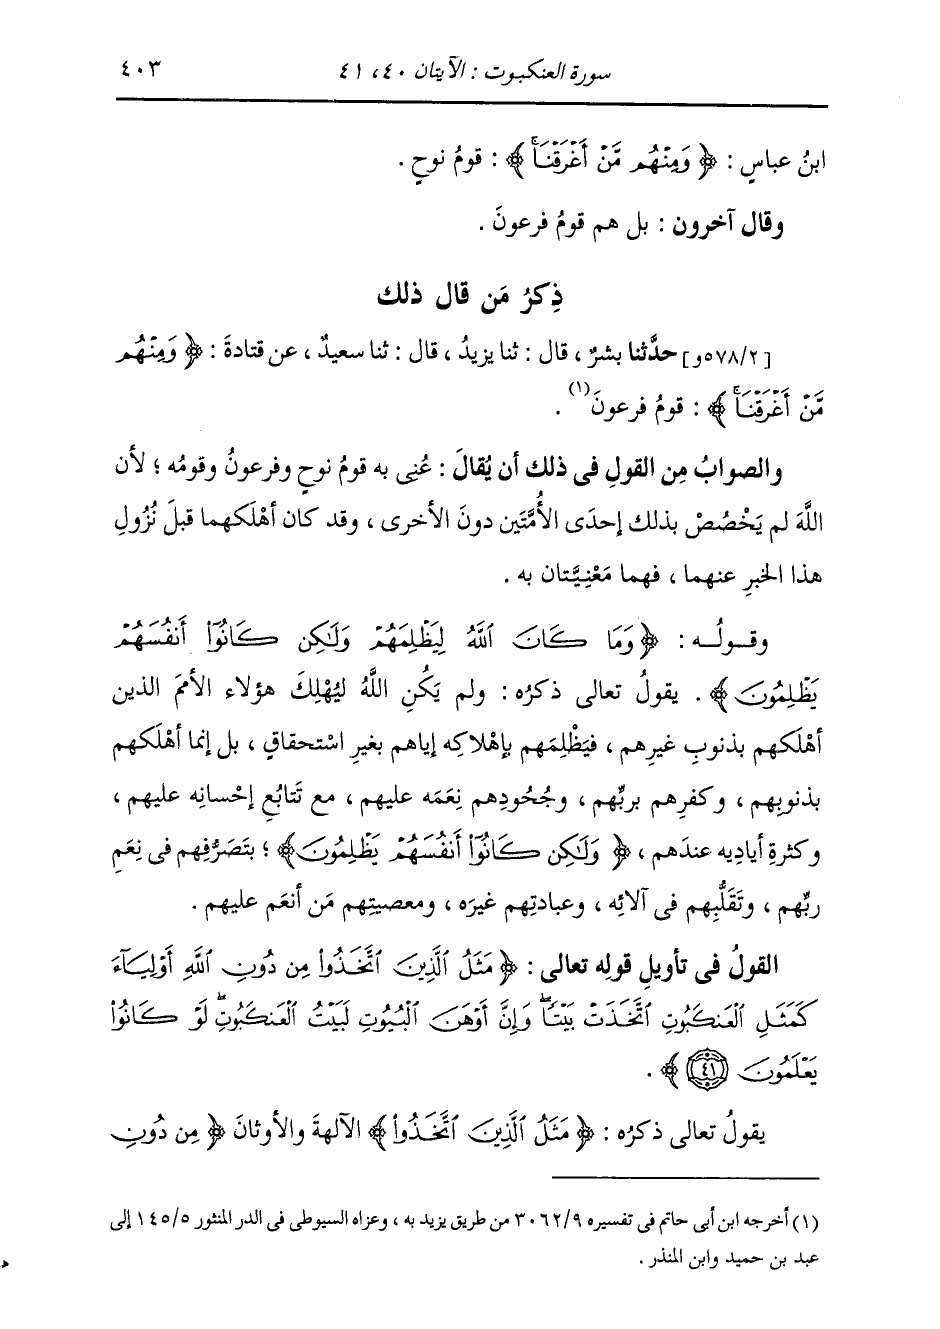 سورة العنكبوت : الآيتان ٤٠، ٤١ ٤٠٣
ابنُ عباسٍ : ﴿ وَمِنْهُم مَّنْ أَغْرَقْنَاۚ ﴾ : قومُ نوحٍ .
وقال آخرون : بل هم قومُ فرعونَ .
ذِكرُ مَن قال ذلك
[٥٧٨/٢و] حدَّثنا بشرٌ ، قال : ثنا يزيدُ ، قال : ثنا سعيدٌ ، عن قتادةَ : ﴿ وَمِنْهُم
مَّنْ أَغْرَقْنَاۚ ﴾ : قومُ فرعونَ(١) .
والصوابُ مِن القولِ فى ذلك أن يُقالَ : عُنِى به قومُ نوحٍ وفرعونُ وقومُه ؛ لأن
اللَّهَ لم يَخْصُصْ بذلك إحدَى الأُمَّتَين دونَ الأخرى ، وقد كان أهْلَكهما قبلَ نُزُولِ
هذا الخبرِ عنهما ، فهما مَعْنِيَّتان به .
وقولُه : ﴿ وَمَا كَانَ ٱللَّهُ لِيَظْلِمَهُمْ وَلَٰكِن كَانُوٓاْ أَنفُسَهُمْ
يَظْلِمُونَ ﴾ . يقولُ تعالى ذكرُه : ولم يَكُنِ اللَّهُ ليُهْلِكَ هؤلاء الأممَ الذين
أهْلَكهم بذنوبِ غيرِهم ، فيَظْلِمَهم بإهْلاكِه إياهم بغيرِ اسْتحقاقٍ ، بل إنما أهْلَكهم
بذنوبِهم ، وكفرِهم بربِّهم ، وجُحُودِهم نِعَمَه عليهم ، مع تَتابُعِ إحْسانِه عليهم ،
وكثرةِ أيادِيه عندَهم ، ﴿ وَلَٰكِن كَانُوٓاْ أَنفُسَهُمْ يَظْلِمُونَ ﴾ ؛ بتَصَرُّفِهم فى نِعَمِ
ربِّهم ، وتَقَلُّبِهم فى آلائِه ، وعبادتِهم غيرَه ، ومعصيتِهم مَن أنعَم عليهم .
القولُ فى تأويلِ قولِه تعالى : ﴿ مَثَلُ ٱلَّذِينَ ٱتَّخَذُواْ مِن دُونِ ٱللَّهِ أَوْلِيَآءَ
كَمَثَلِ ٱلْعَنكَبُوتِ ٱتَّخَذَتْ بَيْتًاۖ وَإِنَّ أَوْهَنَ ٱلْبُيُوتِ لَبَيْتُ ٱلْعَنكَبُوتِۖ لَوْ كَانُواْ
يَعْلَمُونَ ٤١ ﴾ .
يقولُ تعالى ذكرُه : ﴿ مَثَلُ ٱلَّذِينَ ٱتَّخَذُواْ ﴾ الآلهةَ والأوثانَ ﴿ مِن دُونِ
(١) أخرجه ابن أبى حاتم فى تفسيره ٣٠٦٢/٩ من طريق يزيد به ، وعزاه السيوطى فى الدر المنثور ١٤٥/٥ إلى
عبد بن حميد وابن المنذر .